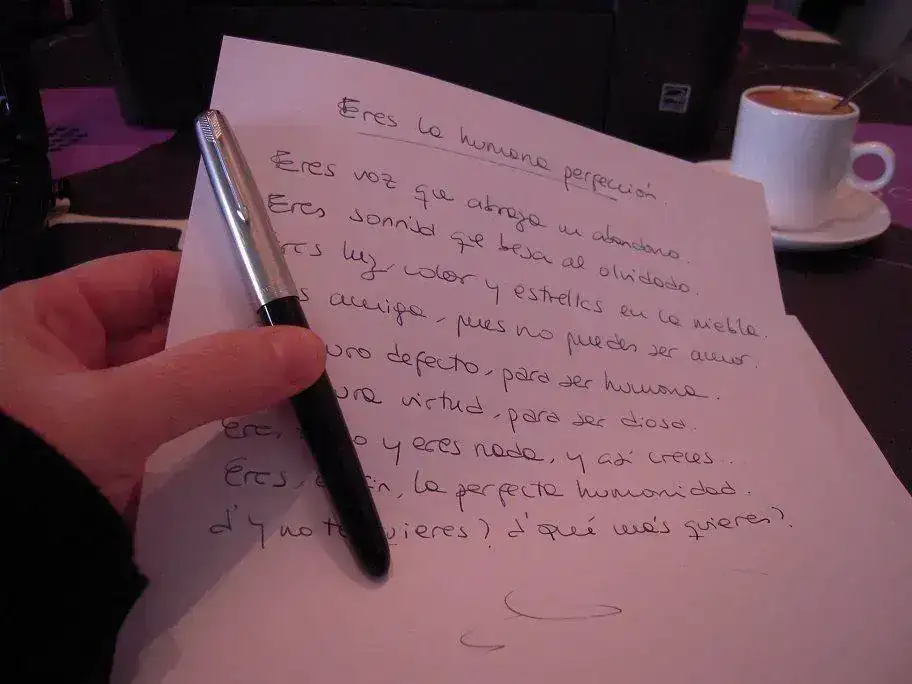 Eres la humana perfección.
Eres voz que abraza un abandono.
Eres sonrisa que besa al olvidado.
Eres luz, color y estrellas en la niebla.
s amiga, pues no puedes ser amor.
uro defecto, para ser humana.
ura virtud, para ser diosa.
Eres o y eres nada, y así creces...
Eres, e fin, la perfecta humanidad.
¿Y no te quieres? ¿qué más quieres?